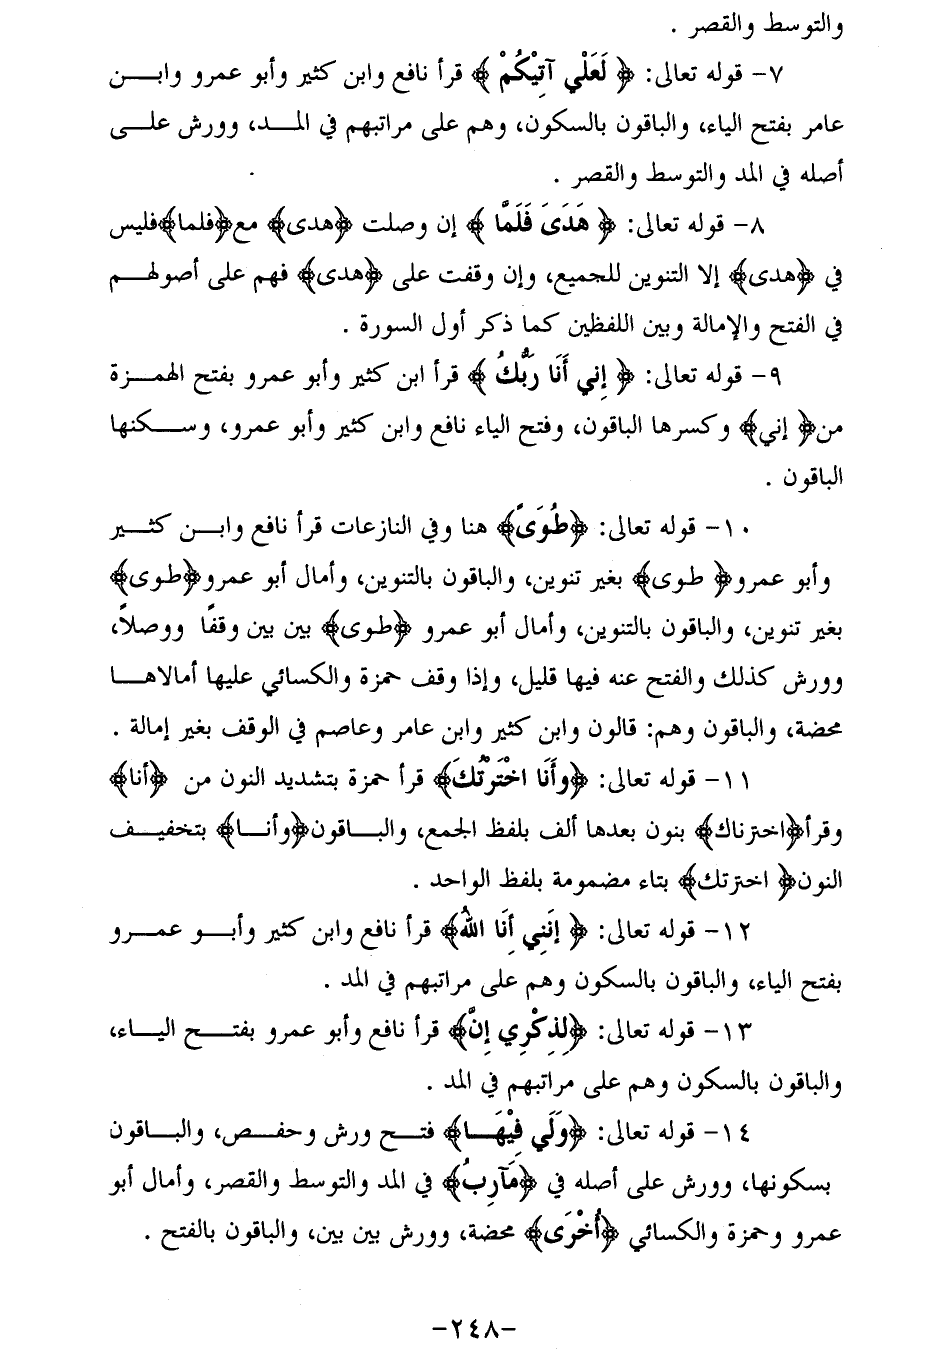 والتوسط والقصر .
٧- قوله تعالى: ﴿ لَعَلْي آتِيْكُمْ ﴾ قرأ نافع وابن كثير وأبو عمرو وابـــن
عامر بفتح الياء، والباقون بالسكون، وهم على مراتبهم في المـــد، وورش علـــى
أصله في المد والتوسط والقصر .
٨- قوله تعالى: ﴿ هَدَىَ فَلَمَّا ﴾ إن وصلت ﴿هدى﴾ مع﴿فلما﴾فليس
في ﴿هدى﴾ إلا التنوين للجميع، وإن وقفت على ﴿هدى﴾ فهم على أصولهـــم
في الفتح والإمالة وبين اللفظين كما ذكر أول السورة .
٩- قوله تعالى: ﴿ إِني أَنَا رَبُّكُ ﴾ قرأ ابن كثير وأبو عمرو بفتح الهمـــزة
من﴿ إني﴾ وكسرها الباقون، وفتح الياء نافع وابن كثير وأبو عمرو، وســـكنها
الباقون .
١٠- قوله تعالى: ﴿طُوَىً﴾ هنا وفي النازعات قرأ نافع وابـــن كثـــير
وأبو عمرو﴿ طوى﴾ بغير تنوين، والباقون بالتنوين، وأمال أبو عمرو﴿طوى﴾
بغير تنوين، والباقون بالتنوين، وأمال أبو عمرو ﴿طوى﴾ بين بين وقفًا ووصلاً،
وورش كذلك والفتح عنه فيها قليل، وإذا وقف حمزة والكسائي عليها أمالاهـــا
محضة، والباقون وهم: قالون وابن كثير وابن عامر وعاصم في الوقف بغير إمالة .
١١- قوله تعالى: ﴿وأَنَا اخْتَرْتُكَ﴾ قرأ حمزة بتشديد النون من ﴿أنا﴾
وقرأ﴿اخترناك﴾ بنون بعدها ألف بلفظ الجمع، والبـــاقون﴿وأنـــا﴾ بتخفيـــف
النون﴿ اخترتك﴾ بتاء مضمومة بلفظ الواحد .
١٢- قوله تعالى: ﴿ إِنَنِي أِنَا اللهُ﴾ قرأ نافع وابن كثير وأبـــو عمـــرو
بفتح الياء، والباقون بالسكون وهم على مراتبهم في المد .
١٣- قوله تعالى: ﴿لِذِكْرِي إِنَّ﴾ قرأ نافع وأبو عمرو بفتـــح اليـــاء،
والباقون بالسكون وهم على مراتبهم في المد .
١٤- قوله تعالى: ﴿وَلَي فِيْهَـــا﴾ فتـــح ورش وحفـــص، والبـــاقون
بسكونها، وورش على أصله في ﴿مَآرِبُ﴾ في المد والتوسط والقصر، وأمال أبو
عمرو وحمزة والكسائي ﴿أُخْرَى﴾ محضة، وورش بين بين، والباقون بالفتح .
-٢٤٨-